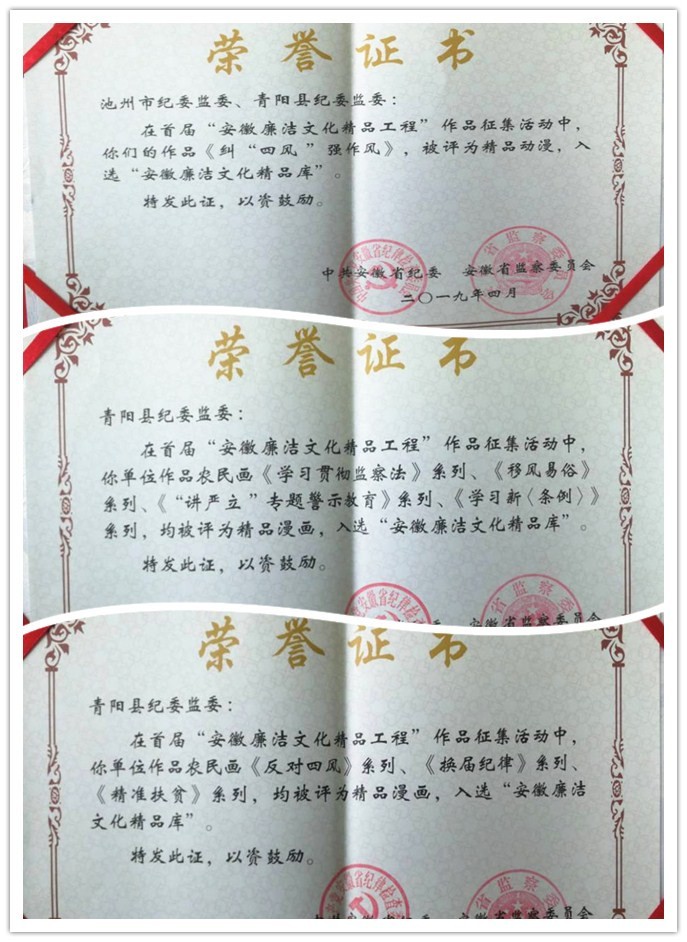 荣誉证书
池州市纪委监委、青阳县纪委监委：
在首届“安徽廉洁文化精品工程”作品征集活动中，
你们的作品《纠“四风”强作风》，被评为精品动漫，入
选“安徽廉洁文化精品库”。
特发此证，以资鼓励。
中共安徽省纪委 安徽省监察委员会
二〇一九年四月
荣誉证书
青阳县纪委监委：
在首届“安徽廉洁文化精品工程”作品征集活动中，
你单位作品农民画《学习贯彻监察法》系列、《移风易俗》
系列、《“讲严立”专题警示教育》系列、《学习新〈条例〉》
系列，均被评为精品漫画，入选“安徽廉洁文化精品库”。
特发此证，以资鼓励。
安徽省监察委员会
荣誉证书
青阳县纪委监委：
在首届“安徽廉洁文化精品工程”作品征集活动中，
你单位作品农民画《反对四风》系列、《换届纪律》系列、
《精准扶贫》系列，均被评为精品漫画，入选“安徽廉洁
文化精品库”。
特发此证，以资鼓励。
中共安徽省纪委 安徽省监察委员会